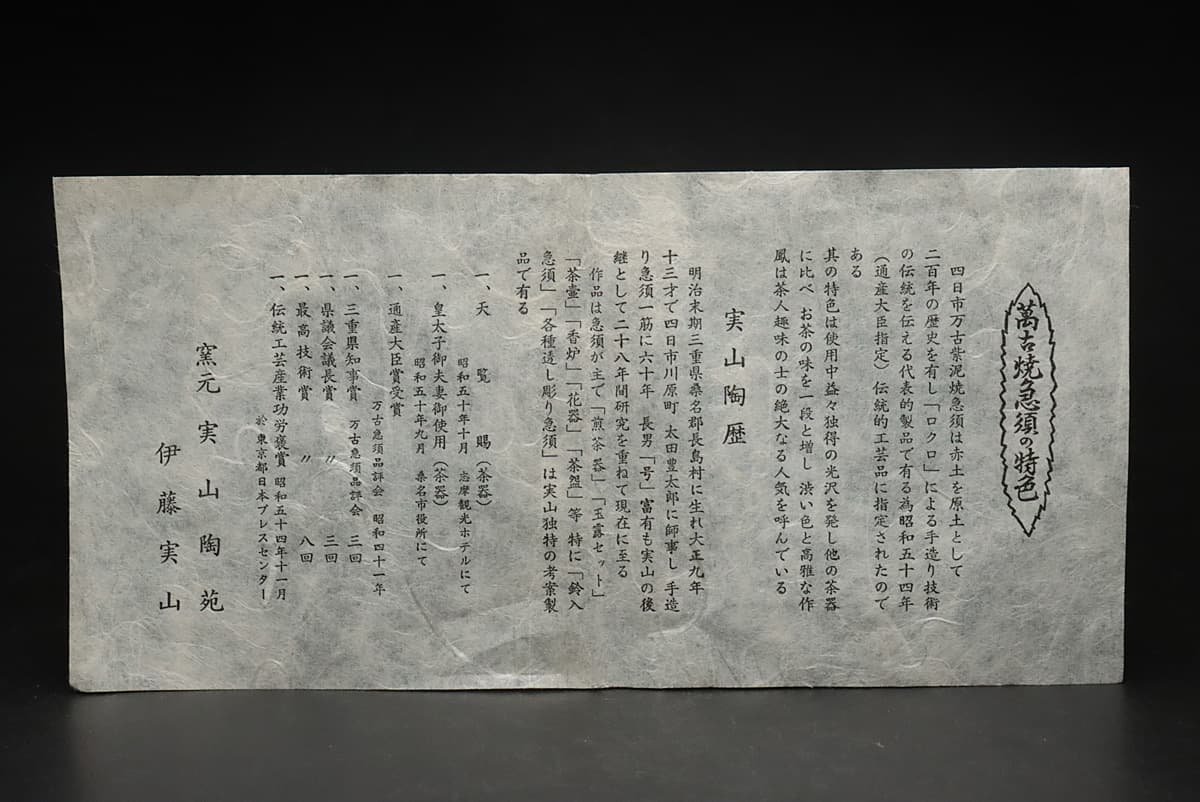 萬古焼急須の特色
四日市万古紫泥焼急須は赤土を原土として
二百年の歴史を有し「ロクロ」による手造り技術
の伝統を伝える代表的製品で有る為昭和五十四年
（通産大臣指定）伝統的工芸品に指定されたので
ある
其の特色は使用中益々独得の光沢を発し他の茶器
に比べ お茶の味を一段と増し 渋い色と高雅な作
風は茶人趣味の士の絶大なる人気を呼んでいる
実山陶歴
明治末期三重県桑名郡長島村に生れ大正九年
十三才で四日市川原町 太田豊太郎に師事し 手造
り急須一筋に六十年 長男「号」富有も実山の後
継として二十八年間研究を重ねて現在に至る
作品は急須が主で「煎茶器」「玉露セット」
「茶壷」「香炉」「花器」「茶盌」等 特に「鈴入
急須」「各種透し彫り急須」は実山独特の考案製
品で有る
一、天覧賜（茶器）
昭和五十年十月 志摩観光ホテルにて
一、皇太子御夫妻御使用（茶器）
昭和五十年九月 桑名市役所にて
一、通産大臣賞受賞
万古急須品評会 昭和四十一年
一、三重県知事賞 万古急須品評会 三回
一、県議会議長賞 〃 三回
一、最高技術賞 〃 八回
一、伝統工芸産業功労褒賞 昭和五十四年十一月
於 東京都日本プレスセンター
窯元 実山陶苑
伊藤実山